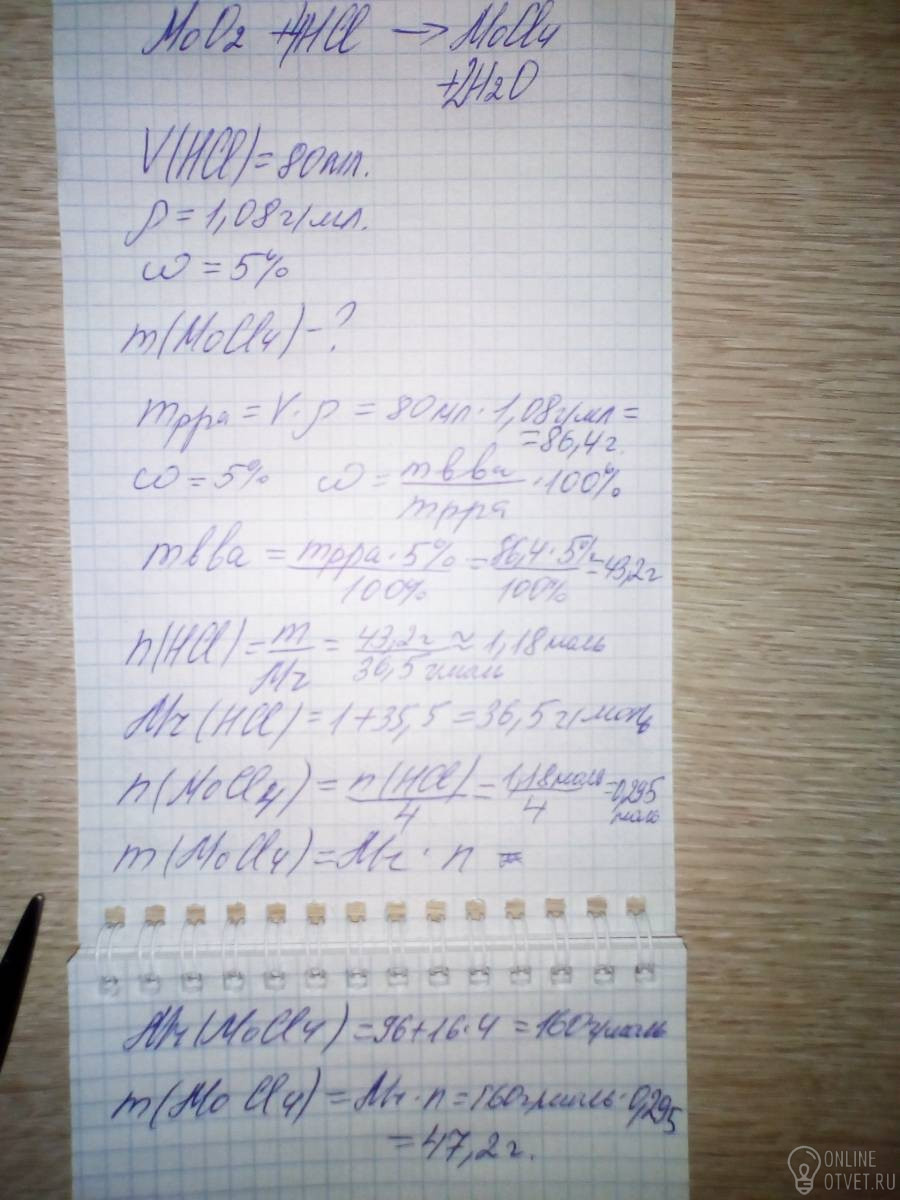 MoO2 + 4HCl → MoCl4
+2H2O
V(HCl) = 80мл.
ρ = 1,08г/мл.
ω = 5%
m(MoCl4) - ?
mрра = V · ρ = 80мл · 1,08г/мл =
= 86,4г.
ω = 5% ω = mвва / mрра · 100%
mвва = mрра · 5% / 100% = 86,4 · 5% / 100% = 43,2г
n(HCl) = m / Mr = 43,2г / 36,5г/моль ≈ 1,18моль
Mr(HCl) = 1 + 35,5 = 36,5г/моль
n(MoCl4) = n(HCl) / 4 = 1,18моль / 4 = 0,295 моль
m(MoCl4) = Mr · n =
Mr(MoCl4) = 96 + 16 · 4 = 160г/моль
m(MoCl4) = Mr · n = 160г/моль · 0,295
= 47,2г.
ONLINE
OTVET.RU